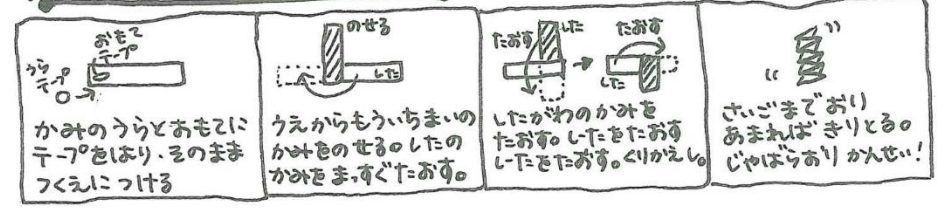 おもて
テープ
うら
テープ
かみのうらとおもてに
テープをはり、そのまま
つくえにつける
のせる
した
うえからもういちまいの
かみをのせる。したの
かみをまっすぐたおす。
たおす
した
たおす
した
したがわのかみを
たおす。したをたおす
したをたおす。くりかえし。
さいごまでおり
あまればきりとる。
じゃばらおりかんせい!